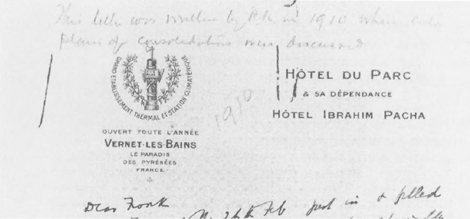 This letter was written by in 1910 when
plans of consolidation were discussed
GRAND ETABLISSEMENT THERMAL ET STATION CLIMATÉRIQUE
1910
OUVERT TOUTE L'ANNÉE
VERNET-LES-BAINS
LE PARADIS
DES PYRÉNÉES
FRANCE.
HÔTEL DU PARC
& SA DÉPENDANCE
HÔTEL IBRAHIM PACHA
Dear Frank
26th Feb just in & filled